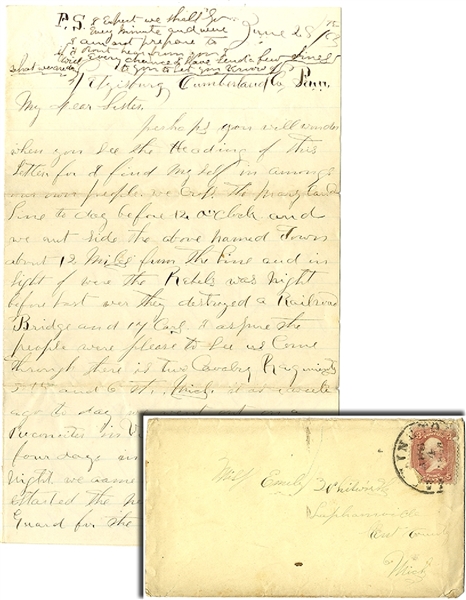 P.S. I expect we shall Go
Every minute and were
I am not prepare to
June 28
if I dont hear from you I
will Every chance I have Send a few lines
to you to let you know
what we are
Cumberland Co Penn.
My dear Sister.
perhaps you will wonder
when you See the Heading of this
Letter for I find My Self in among
our own people we Crost the Maryland
Line to day before 12 O'Clock and
we out Side the above named Town
about 12 Miles from the Line and in
Sight of were the Rebels was Night
before last were they destroyed a Railroad
Bridge and 17 Cars. I asure the
people were please to See us Come
through there is two Cavalry Regiments
5th and 6th Mich. it is a week
ago to day we went out on a
reconiter in V
four days an
Night we came
started the
Guard for the
Miss Emily
Lapham
Kent County
Mich